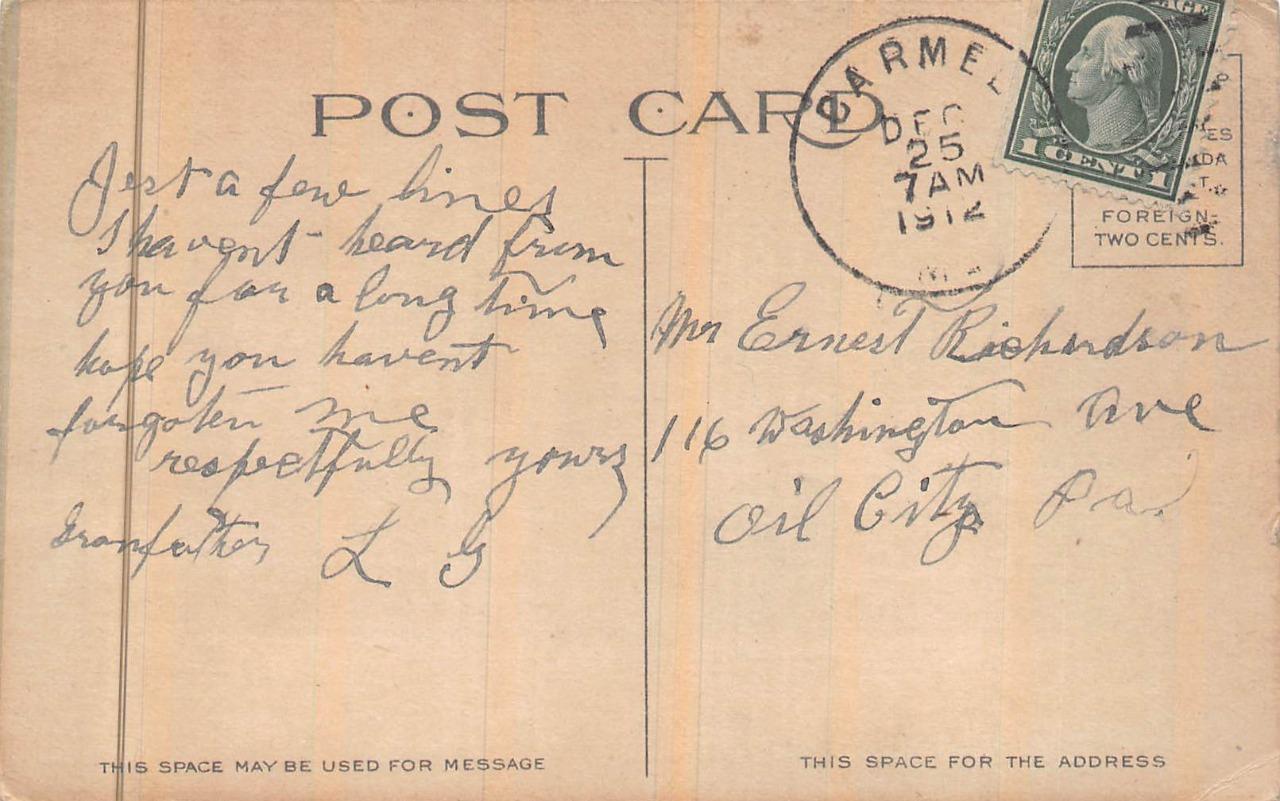 POST CARD
CARMEL
DEC
25
7 AM
1912
1 CENT 1
ES
DA
T.
FOREIGN-
TWO CENTS.
Just a few lines
I havent heard from
you for a long time
hope you havent
forgoten me
respectfully yours
Granfather L G
Mr Ernest Richardson
116 Washington Ave
Oil City Pa.
THIS SPACE MAY BE USED FOR MESSAGE
THIS SPACE FOR THE ADDRESS